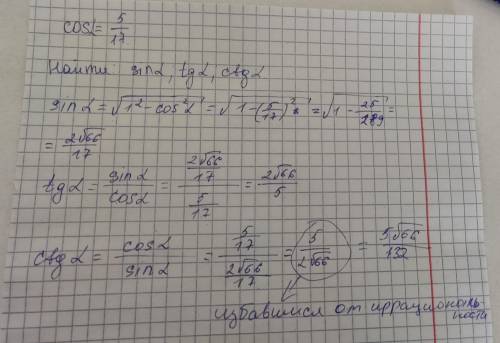 cosα = 5/17
Найти: sinα, tgα, ctgα
sinα = √(1² - cos²α) = √(1 - (5/17)²) = √(1 - 25/289) =
= 2√66/17
tgα = sinα/cosα = (2√66/17)/(5/17) = 2√66/5
ctgα = cosα/sinα = (5/17)/(2√66/17) = 5/(2√66) = 5√66/132
избавимся от иррациональности